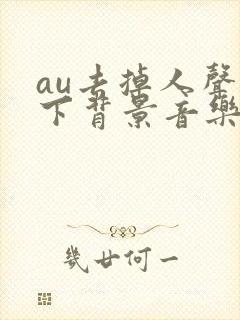 au去掉人聲
下背景音樂
幾廿何一